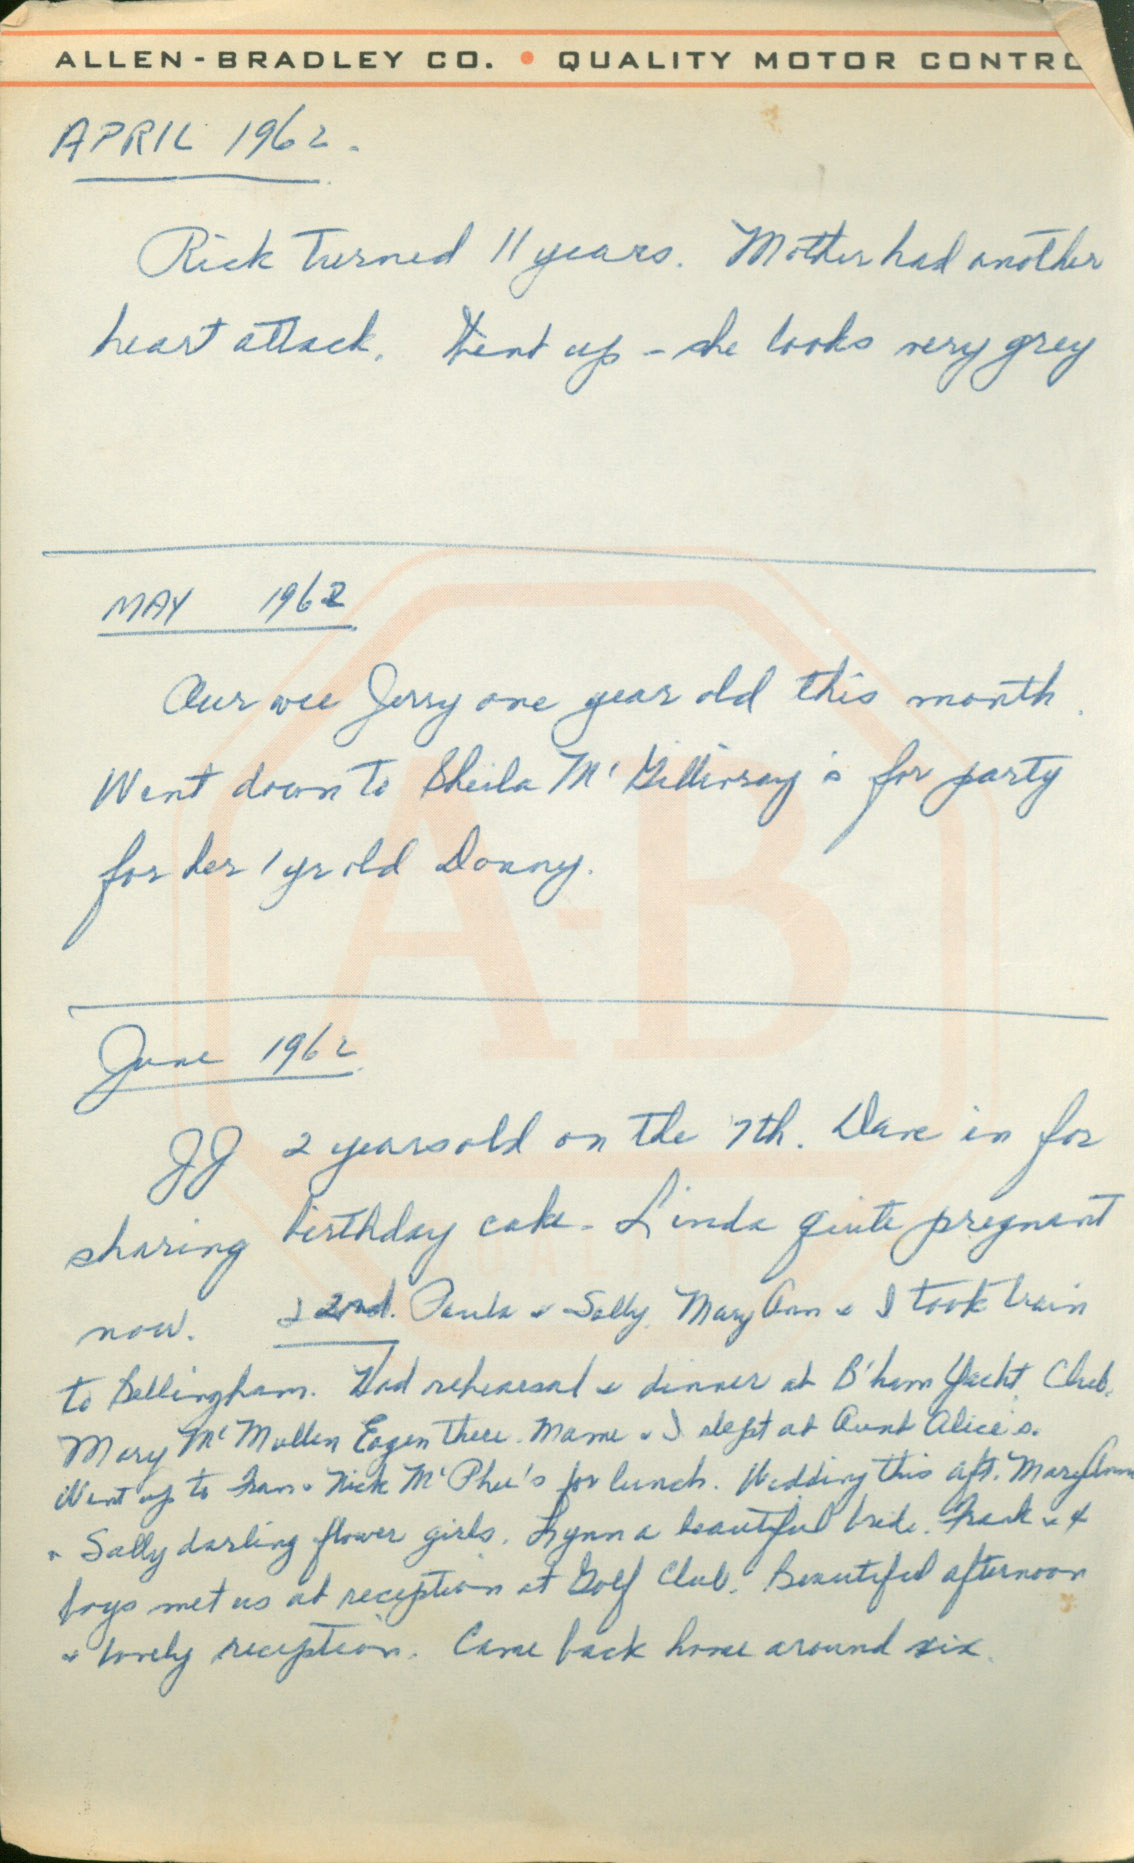 ALLEN-BRADLEY CO. • QUALITY MOTOR CONTRO
APRIL 1962.
Rick turned 11 years. Mother had another
heart attack. Went up - she looks very grey
MAY 1962
Our wee Jerry one year old this month.
Went down to Sheila McGillivray's for party
for her 1 yr old Donny.
June 1962
JJ 2 years old on the 7th. Dave in for
sharing birthday cake - Linda quite pregnant
now. 22nd. Paula & Sally, Mary Ann & I took train
to Bellingham. Had rehearsal & dinner at B'ham Yacht Club.
Mary McMullen Eagen there. Mame & I slept at Aunt Alice's.
Went up to Fran & Nick McPhee's for lunch. Wedding this aft. Mary Ann
& Sally darling flower girls. Lynn a beautiful bride. Frank & 4
boys met us at reception at Golf Club. Beautiful afternoon
& lovely reception. Came back home around six.
A-B
QUALITY